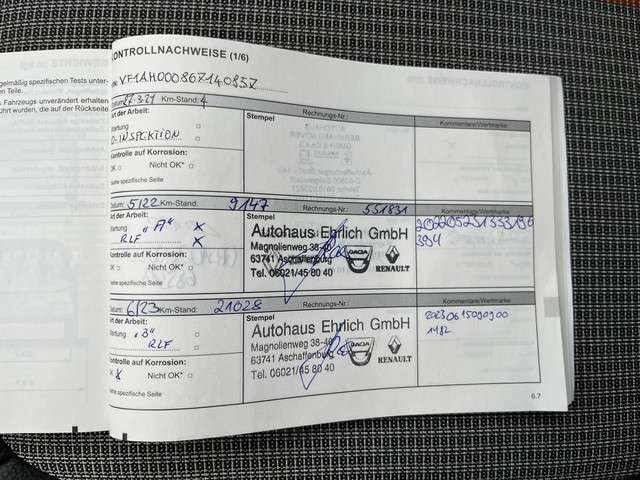 GEWICHTE
gelmäßig spezifischen Tests unter-
en Teile.
s Fahrzeugs unverändert erhalten
führt wurden, die auf der Rückseite
KONTROLLNACHWEISE (1/6)
Datum: 22.3.21 Km-Stand: 4
Rechnungs-Nr.:
Kommentare/Wertmarke
Art der Arbeit:
Stempel
Wartung
0-INSPEKTION
Kontrolle auf Korrosion:
OK Nicht OK*
Siehe spezifische Seite
Datum: 5/22 Km-Stand: 9147 Rechnungs-Nr.: 551831
Kommentare/Wertmarke
Art der Arbeit:
Stempel
Wartung "A" X
RLF X
Autohaus Ehrlich GmbH
Magnolienweg 38-40
63741 Aschaffenburg
Tel. 06021/45 80 40
DACIA
RENAULT
394
Kontrolle auf Korrosion:
OK Nicht OK*
Siehe spezifische Seite
Datum: 6/23 Km-Stand: 21028 Rechnungs-Nr.:
Kommentare/Wertmarke
Art der Arbeit:
Stempel
Wartung "B"
RLF
Autohaus Ehrlich GmbH
Magnolienweg 38-40
63741 Aschaffenburg
Tel. 06021/45 80 40
DACIA
RENAULT
20230615090900
1482
Kontrolle auf Korrosion:
OK X Nicht OK*
Siehe spezifische Seite
6.7